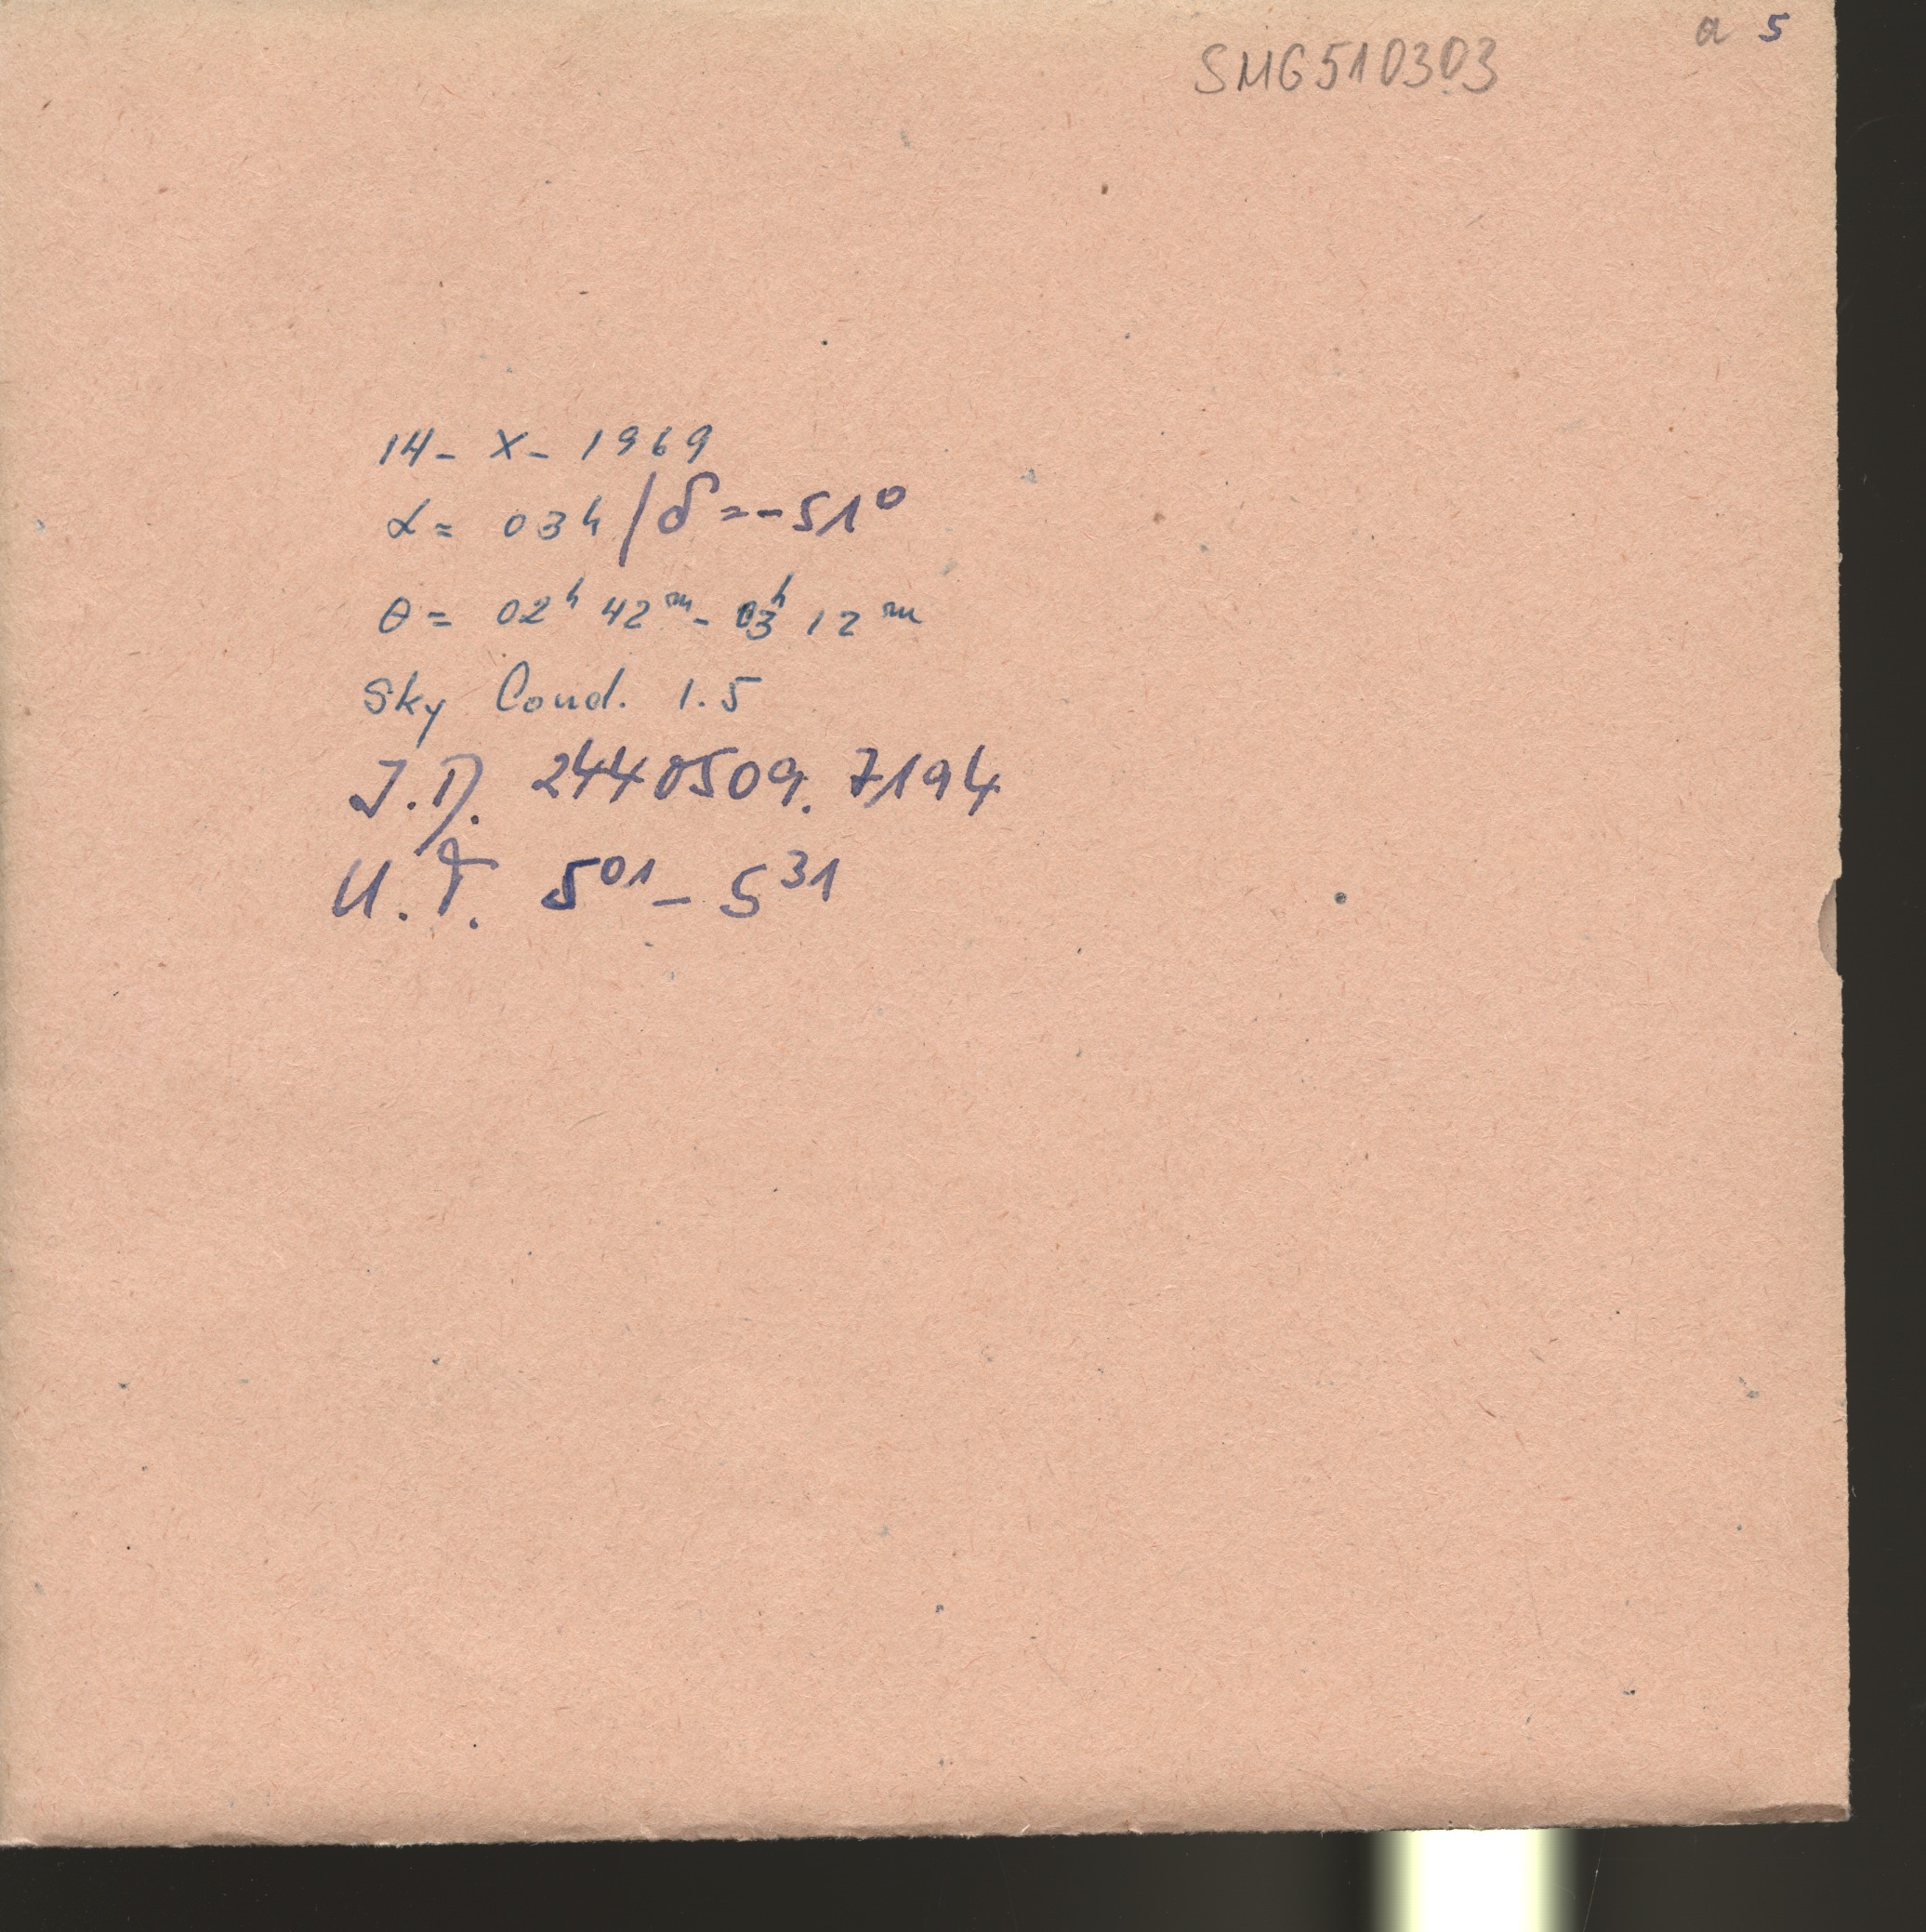 a 5
SMG510303
14- X- 1969
α= 03h / δ=-51°
θ= 02ʰ 42ᵐ- 03ʰ 12ᵐ
Sky Cond. 1.5
J.D. 2440509.7194
U.T. 5⁰¹ - 5³¹